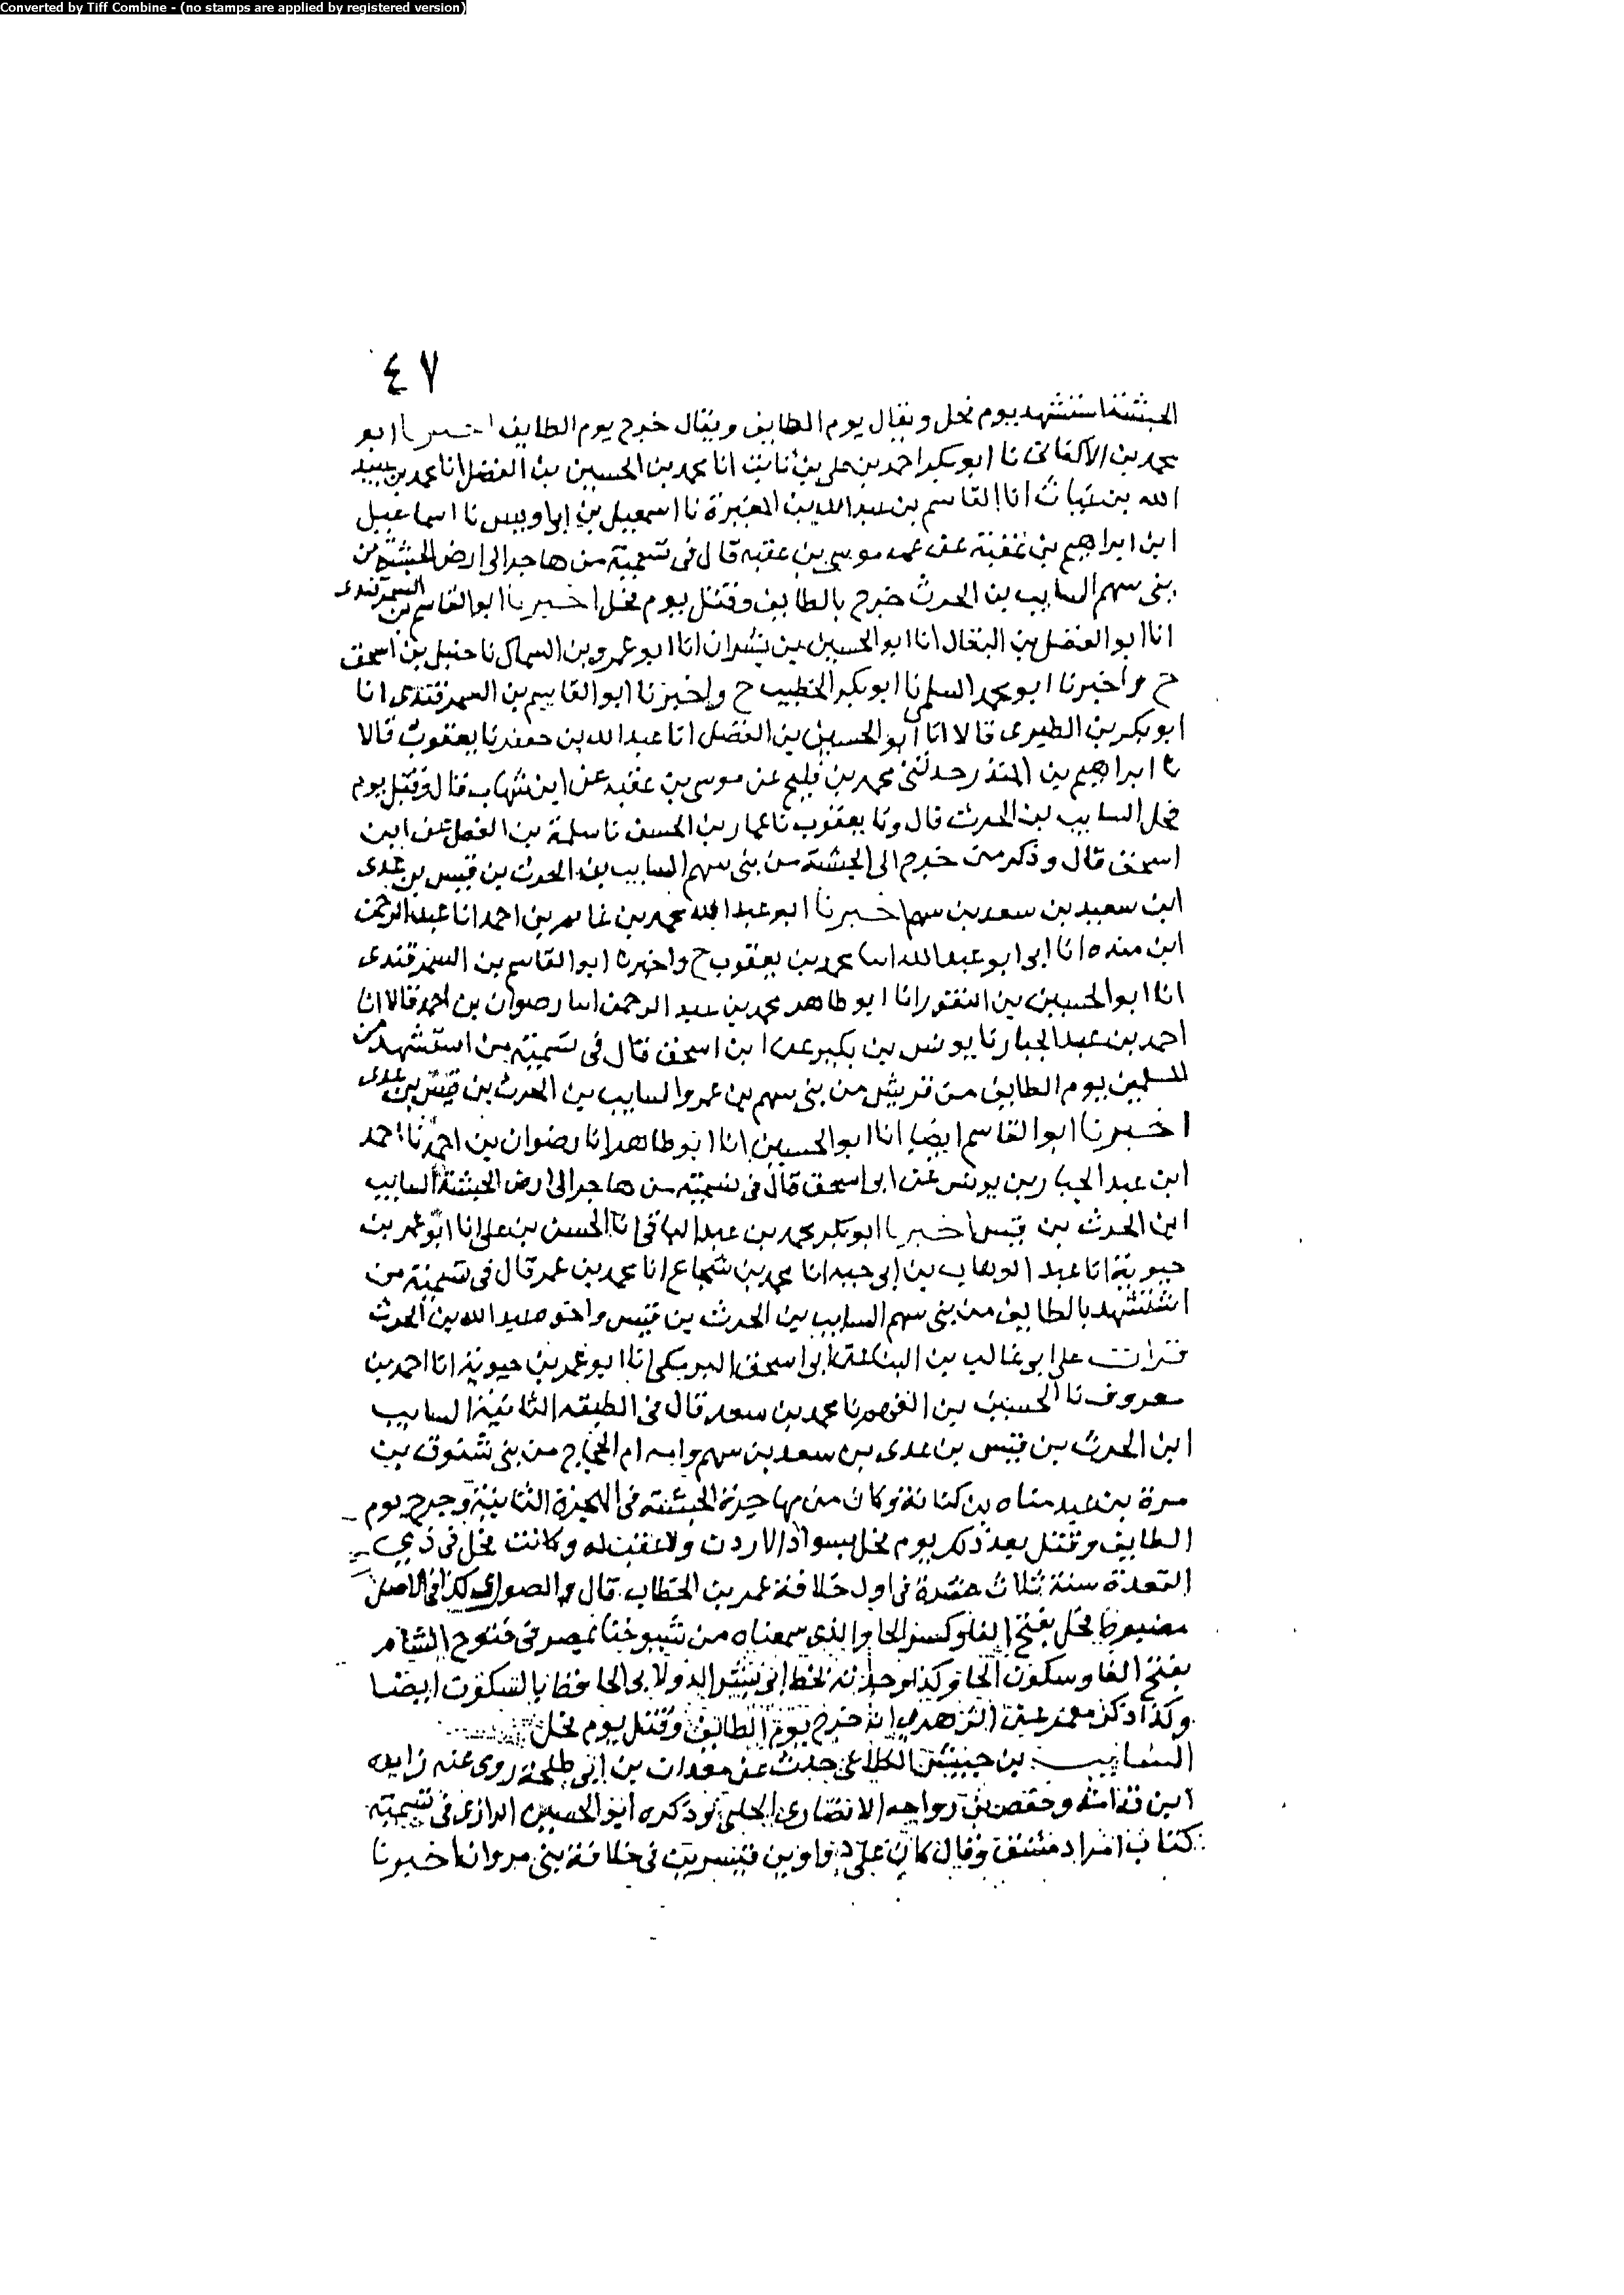 Converted by Tiff Combine - (no stamps are applied by registered version)
٤٧
الحبشة استشهد يوم فحل ويقال يوم الطايف ويقال خرج يوم الطايف اخبرنا ابو
محمد بن الاكفانى نا ابو بكر احمد بن على بن ثابت انا محمد بن الحسين بن الفضل انا محمد بن عبد
الله بن عتاب انا القاسم بن عبد الله بن المغيرة نا اسمعيل بن ابى اويس نا اسماعيل
ابن ابراهيم بن عقبة عن عمه موسى بن عقبه قال فى تسمية من هاجر الى ارض الحبشة من
بنى سهم السايب بن الحرث خرج بالطايف وقتل يوم فحل اخبرنا ابو القاسم بن السمرقندى
انا ابو الفضل بن البقال انا ابو الحسين بن بشران انا ابو عمرو بن السماك نا حنبل بن اسحق
ح واخبرنا ابو محمد السلمى نا ابو بكر الخطيب ح واخبرنا ابو القاسم بن السمرقندى انا
ابو بكر بن الطبرى قالا انا ابو الحسين بن الفضل انا عبد الله بن جعفر نا يعقوب قالا
نا ابراهيم بن المنذر حدثنى محمد بن فليح عن موسى بن عقبه عن ابن شهاب قال وقتل يوم
فحل السايب بن الحرث قال ونا يعقوب نا عمار بن الحسن نا سلمة بن الفضل عن ابن
اسحق قال وذكر من خرج الى الحبشة من بنى سهم السايب بن الحرث بن قيس بن عدى
ابن سعيد بن سعد بن سهم اخبرنا ابو عبد الله محمد بن غانم بن احمد انا عبد الرحمن
ابن منده انا ابى ابو عبد الله انا محمد بن يعقوب ح واخبرنا ابو القاسم بن السمرقندى
انا ابو الحسين بن النقور انا ابو طاهر محمد بن عبد الرحمن انا رضوان بن احمد قالا انا
احمد بن عبد الجبار نا يونس بن بكير عن ابن اسحق قال فى تسمية من استشهد من
المسلمين يوم الطايف من قريش من بنى سهم بن عمرو السايب بن الحرث بن قيس بن عدى
اخبرنا ابو القاسم ايضا انا ابو الحسين انا ابو طاهر انا رضوان بن احمد نا احمد
ابن عبد الجبار بن يونس عن ابن اسحق قال فى تسمية من هاجر الى ارض الحبشة السايب
ابن الحرث بن قيس اخبرنا ابو بكر محمد بن عبد الباقى انا الحسن بن على انا ابو عمر بن
حيوية انا عبد الوهاب بن ابى حيه انا محمد بن شجاع انا محمد بن عمر قال فى تسمية من
استشهد بالطايف من بنى سهم السايب بن الحرث بن قيس واخوه عبد الله بن الحرث
قرات على ابو غالب بن البنا عن ابى اسحق البرمكى انا ابو عمر بن حيوية انا احمد بن
معروف نا الحسين بن الفهم نا محمد بن سعد قال فى الطبقه الثانية السايب
ابن الحرث بن قيس بن عدى بن سعد بن سهم وامه ام الحجاج من بنى شنوق بن
مرة بن عبد مناه بن كنانة وكان من مهاجرة الحبشة فى الهجرة الثانية وجرح يوم
الطايف وقتل بعد ذلك يوم فحل بسواد الاردن ولا عقب له وكانت فحل فى ذي
القعدة سنة ثلاث عشرة فى اول خلافة عمر بن الخطاب قال الصورى كذا فى الاصل
مضبوط فحل بفتح الفا وكسر الحا والذى سمعناه من شيوخنا بمصر فى فتوح الشام
بفتح الفا وسكون الحا وكذا وجدته بخط ابى بشر الدولابى الحافظ بالسكون ايضا
وكذا ذكر معمر عن الزهرى انه خرج يوم الطايف وقتل يوم فحل
السايب بن حبيش الكلاعى حدث عن معدان بن ابى طلحة روى عنه زايده
ابن قدامة وحفص بن رواحه الانصارى الحلبى وذكره ابو الحسين الرازى فى تسمية
كتاب امرا دمشق وقال كان على دواوين قنسرين فى خلافة بنى مروان اخبرنا